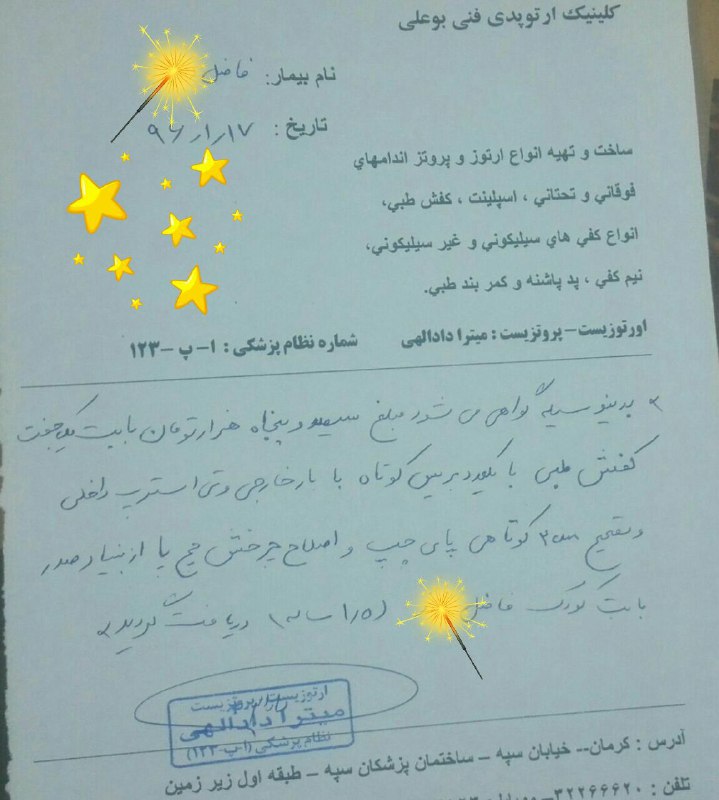 کلینیک ارتوپدی فنی بوعلی
نام بیمار: فاضل
تاریخ: ۹۶/۱/۱۷
ساخت و تهیه انواع ارتوز و پروتز اندامهاي
فوقاني و تحتاني ، اسپلینت ، کفش طبي،
انواع کفي هاي سیلیکوني و غیر سیلیکوني،
نیم کفي ، پد پاشنه و کمر بند طبي.
اورتوزیست- پروتزیست : میترا دادالهی شماره نظام پزشکی : ۱- پ -۱۲۳
بدینوسیله گواهی می شود مبلغ سیصد و پنجاه هزار تومان بابت یک جفت
کفش طبی با یکعدد بریس کوتاه با بار خارجی و تی استرپ داخلی
و تصحیح ۳cm کوتاهی پای چپ و اصلاح چرخش مچ پا از بنیاد صدر
بابت کودک فاضل (۱/۵ ساله) دریافت گردید
ارتوزیست، پروتزیست
میترا دادالهی
نظام پزشکی (۱-پ-۱۲۳)
آدرس : کرمان-- خیابان سپه - ساختمان پزشکان سپه - طبقه اول زیر زمین
تلفن : ۳۲۲۶۶۶۲۰-